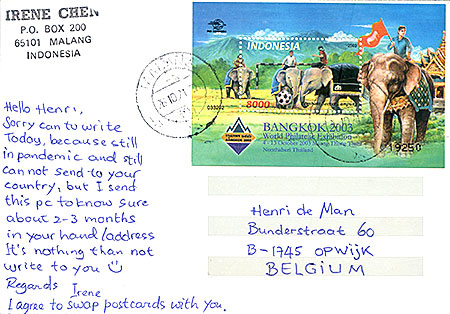 IRENE CHEN
P.O. BOX 200
65101 MALANG
INDONESIA
Hello Henri,
Sorry can tu write
Today, because still
in pandemic and still
can not send to your
country, but I send
this pc to know sure
about 2-3 months
in your hand/address
It's nothing than not
write to you
Regards
Irene
I agree to swap postcards with you.
INDONESIA
8000
BANGKOK 2003
World Philatelic Exhibition
4 - 13 October 2003
Nonthaburi Thailand
19250
Henri de Man
Bunderstraat 60
B-1745 OPWIJK
BELGIUM